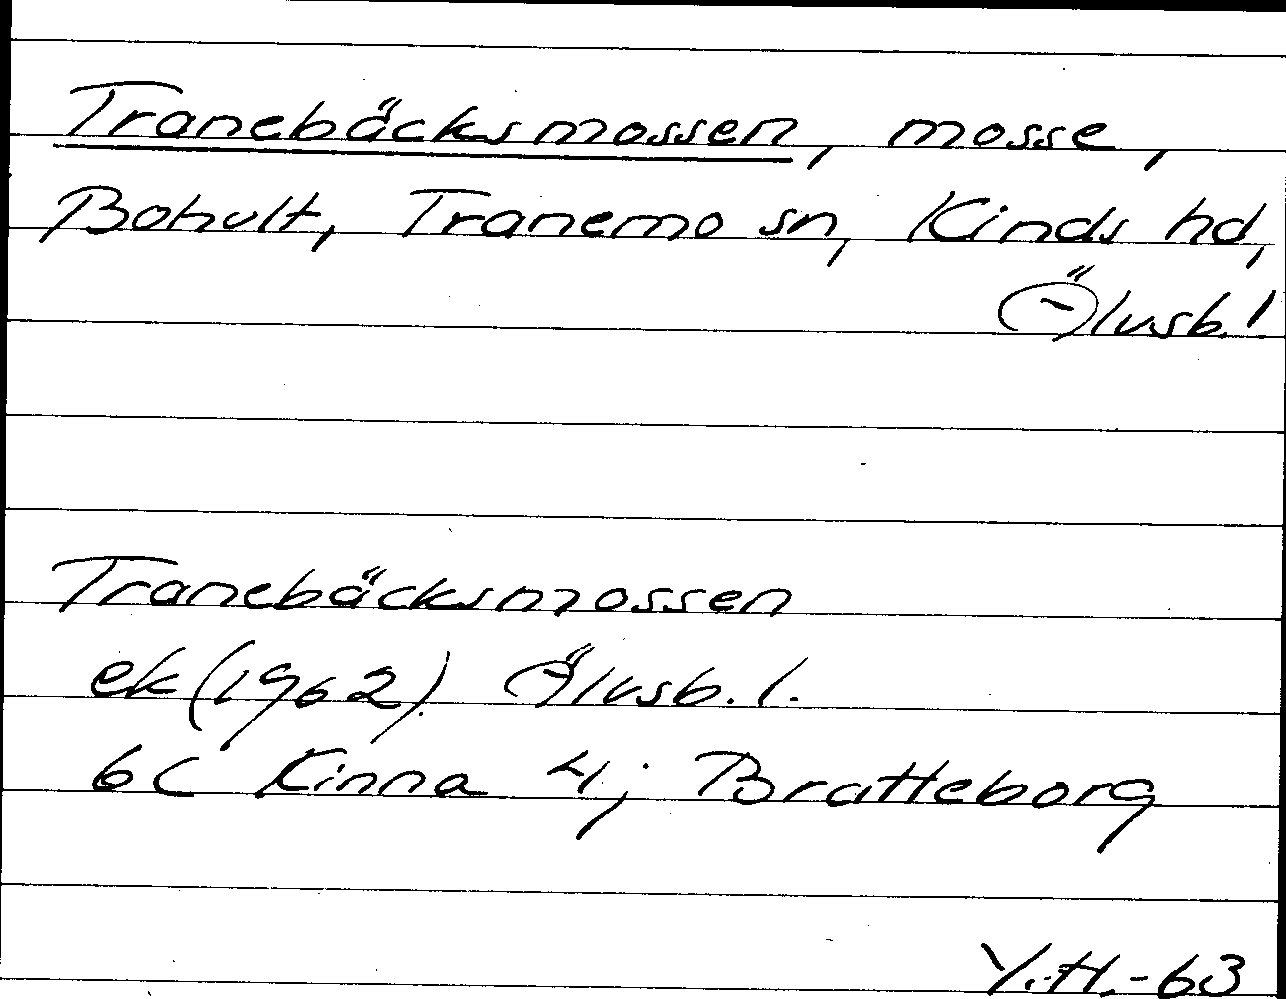 Tranebäcksmossen, mosse,
Bohult, Tranemo sn, Kinds hd,
Älvsb. l
Tranebäcksmossen
ek (1962) Älvsb. l.
6C Kinna 4j Bratteborg
Y.H.-63